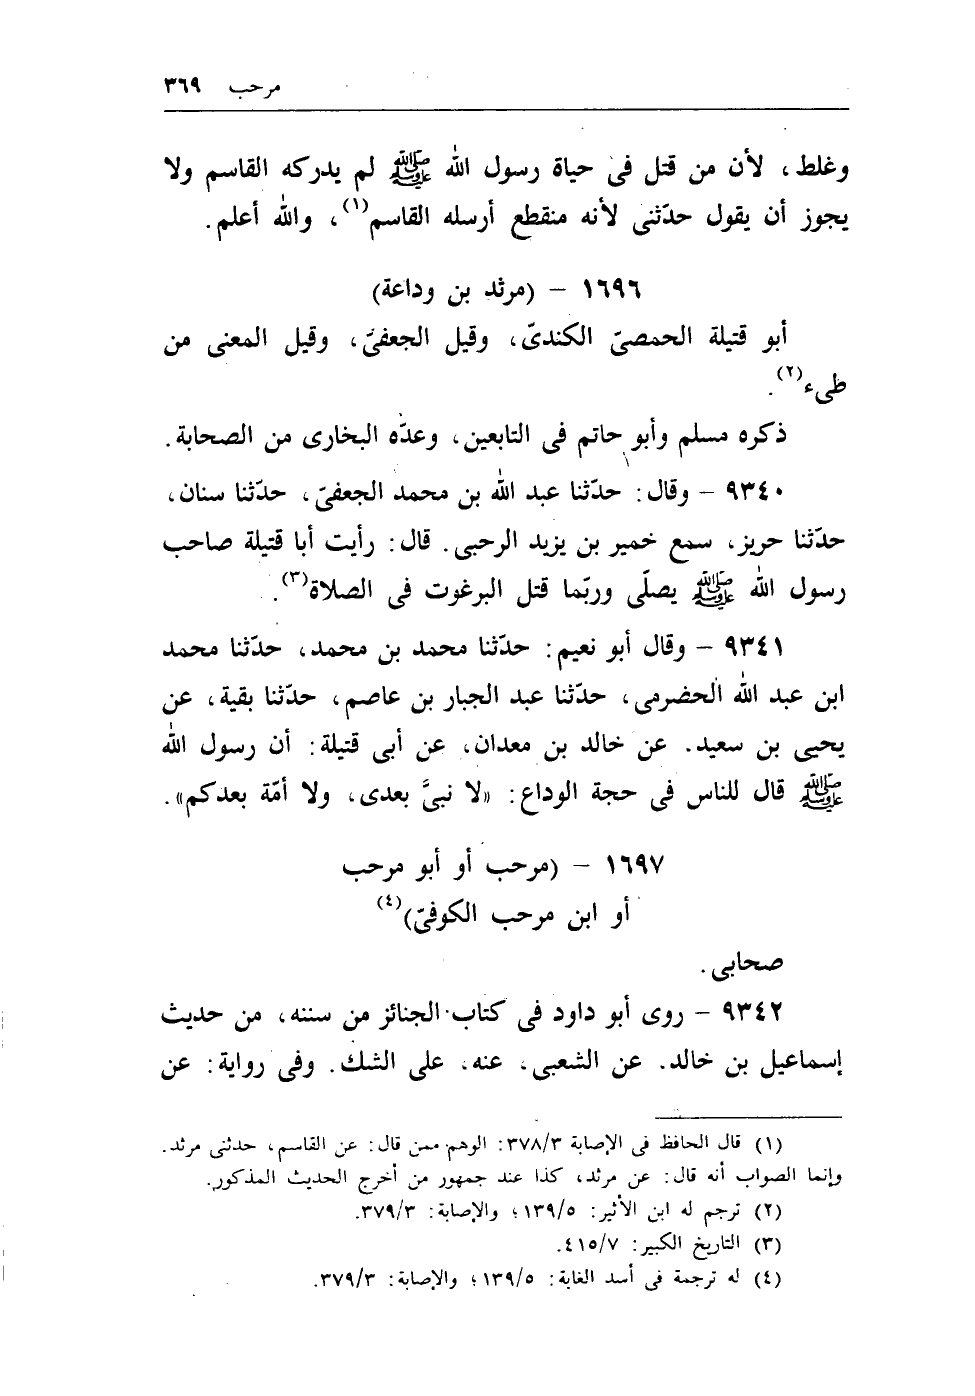 مرحب ٣٦٩
وغلط، لأن من قتل فى حياة رسول الله ﷺ لم يدركه القاسم ولا
يجوز أن يقول حدّثنى لأنه منقطع أرسله القاسم(١)، والله أعلم.
١٦٩٦ – (مرثد بن وداعة)
أبو قتيلة الحمصىّ الكندىّ، وقيل الجعفىّ، وقيل المعنى من
طىء(٢).
ذكره مسلم وأبو حاتم فى التابعين، وعدّه البخارى من الصحابة.
٩٣٤٠ – وقال: حدّثنا عبد الله بن محمد الجعفىّ، حدّثنا سنان،
حدّثنا حريز، سمع خمير بن يزيد الرحبى. قال: رأيت أبا قتيلة صاحب
رسول الله ﷺ يصلّى وربّما قتل البرغوت فى الصلاة(٣).
٩٣٤١ – وقال أبو نعيم: حدّثنا محمد بن محمد، حدّثنا محمد
ابن عبد الله الحضرمى، حدّثنا عبد الجبار بن عاصم، حدّثنا بقية، عن
يحيى بن سعيد. عن خالد بن معدان، عن أبى قتيلة: أن رسول الله
ﷺ قال للناس فى حجة الوداع: «لا نبىَّ بعدى، ولا أمّة بعدكم».
١٦٩٧ – (مرحب أو أبو مرحب
أو ابن مرحب الكوفىّ)(٤)
صحابى.
٩٣٤٢ – روى أبو داود فى كتاب الجنائز من سننه، من حديث
إسماعيل بن خالد. عن الشعبى، عنه، على الشك. وفى رواية: عن
(١) قال الحافظ فى الإصابة ٣٧٨/٣: الوهم ممن قال: عن القاسم، حدثنى مرثد.
وإنما الصواب أنه قال: عن مرثد، كذا عند جمهور من أخرج الحديث المذكور.
(٢) ترجم له ابن الأثير: ١٣٩/٥؛ والإصابة: ٣٧٩/٣.
(٣) التاريخ الكبير: ٤١٥/٧.
(٤) له ترجمة فى أسد الغابة: ١٣٩/٥؛ والإصابة: ٣٧٩/٣.